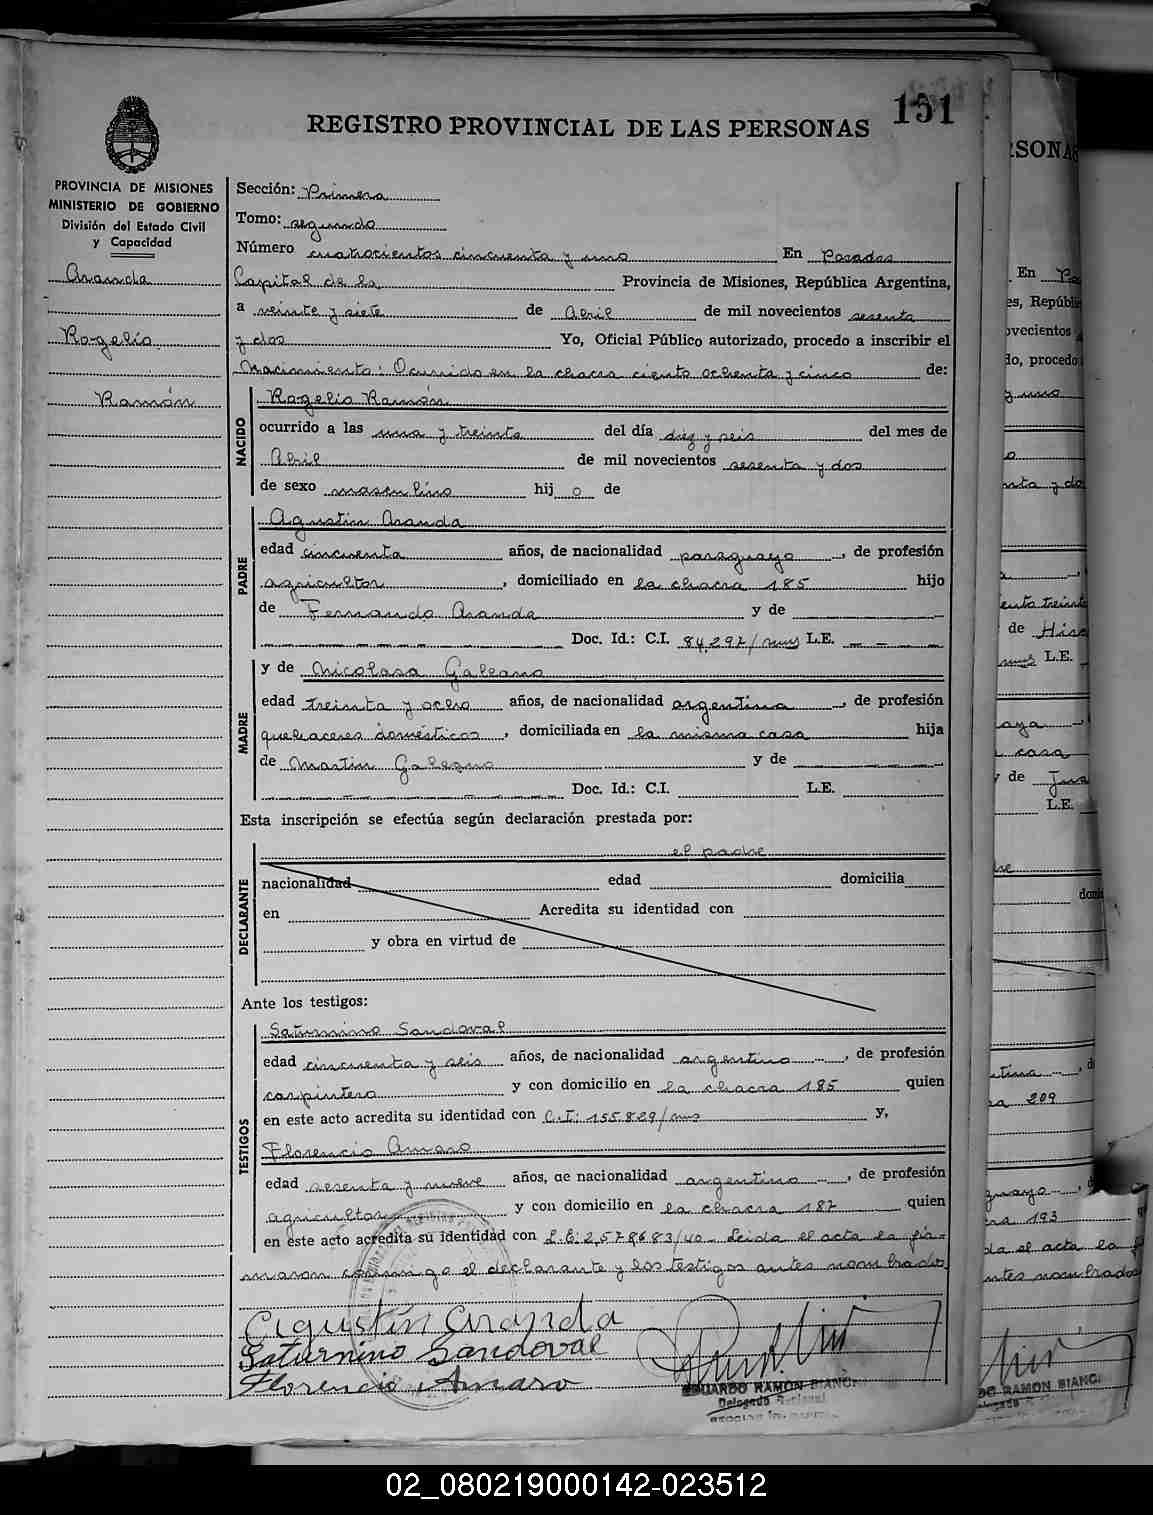 151
REGISTRO PROVINCIAL DE LAS PERSONAS
PROVINCIA DE MISIONES
MINISTERIO DE GOBIERNO
División del Estado Civil
y Capacidad
Aranda
Rogelio
Ramón
Sección: Primera
Tomo: segundo
Número cuatrocientos cincuenta y uno En Posadas
Capital de la Provincia de Misiones, República Argentina,
a veinte y siete de Abril de mil novecientos sesenta
y dos Yo, Oficial Público autorizado, procedo a inscribir el
Nacimiento: Ocurrido en la chacra ciento ochenta y cinco de:
NACIDO
Rogelio Ramón
ocurrido a las una y treinta del día diez y seis del mes de
Abril de mil novecientos sesenta y dos
de sexo masculino hij o de
PADRE
Agustin Aranda
edad cincuenta años, de nacionalidad paraguayo, de profesión
agricultor, domiciliado en la chacra 185 hijo
de Fernanda Aranda y de
Doc. Id.: C.I. 84.297/mns L.E.
MADRE
y de Nicolasa Galeano
edad treinta y ocho años, de nacionalidad argentina, de profesión
quehaceres domésticos, domiciliada en la misma casa hija
de Martin Galeano y de
Doc. Id.: C.I. L.E.
Esta inscripción se efectúa según declaración prestada por:
DECLARANTE
el padre
nacionalidad edad domicilia
en Acredita su identidad con
y obra en virtud de
Ante los testigos:
TESTIGOS
Saturnino Sandoval
edad cincuenta y seis años, de nacionalidad argentino, de profesión
carpintero y con domicilio en la chacra 185 quien
en este acto acredita su identidad con C.I: 155.829/mns y,
Florencio Amaro
edad sesenta y nueve años, de nacionalidad argentino, de profesión
agricultor y con domicilio en la chacra 187 quien
en este acto acredita su identidad con Leida el acta la fir-
maron conmigo el declarante y los testigos antes nombrados
Agustín Aranda
Saturnino Sandoval
Florencio Amaro
EDUARDO RAMON BIANCI
Delegado
RSONAS
En
es, Repúbli
ovecientos
do, procedo
y uno
de
L.E.
casa
y de
L.E.
209
193
da el acta la
ntes nombrados
DO RAMON BIANCI
02_080219000142-023512